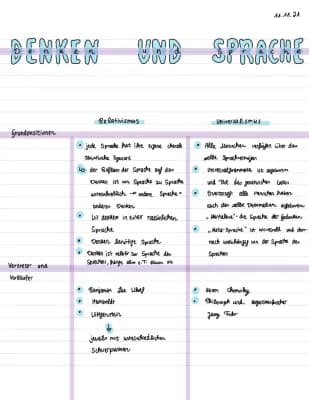 11.11.21
DENKEN UND SPRACHE
Denken und Sprache
Relativismus
Universalismus
Grundpositionen
jede Sprache hat ihre eigene charak
teristische Eigenart
der Einfluss der Sprache auf das
Denken ist von Sprache zu Sprache
unterschiedlich → andere Sprache -
anderes Denken
Denken in einer
Sprache
Denken benötigt Sprache
Denken ist relativ zur Sprache des
Sprechers, hängt also z.T. davon ab
Alle Menschen verfügen über das
selbe
Universalgrammatik ist angeboren
und Teil des genetischen Codes
alle Menschen haben
auch das selbe
"Mentalese" - die Sprache der Gedanken
"Meta-Sprache" ist universell und dem
nach unabhängig von der Sprache des
Sprechers
Vertreter und
Vorläufer
Benjamin Lee Whorf
Humboldt
Wittgenstein
jeweils mit unterschiedlichen
Schwerpunkten
Noam Chomsky
Philosoph und
Jerry Fodor